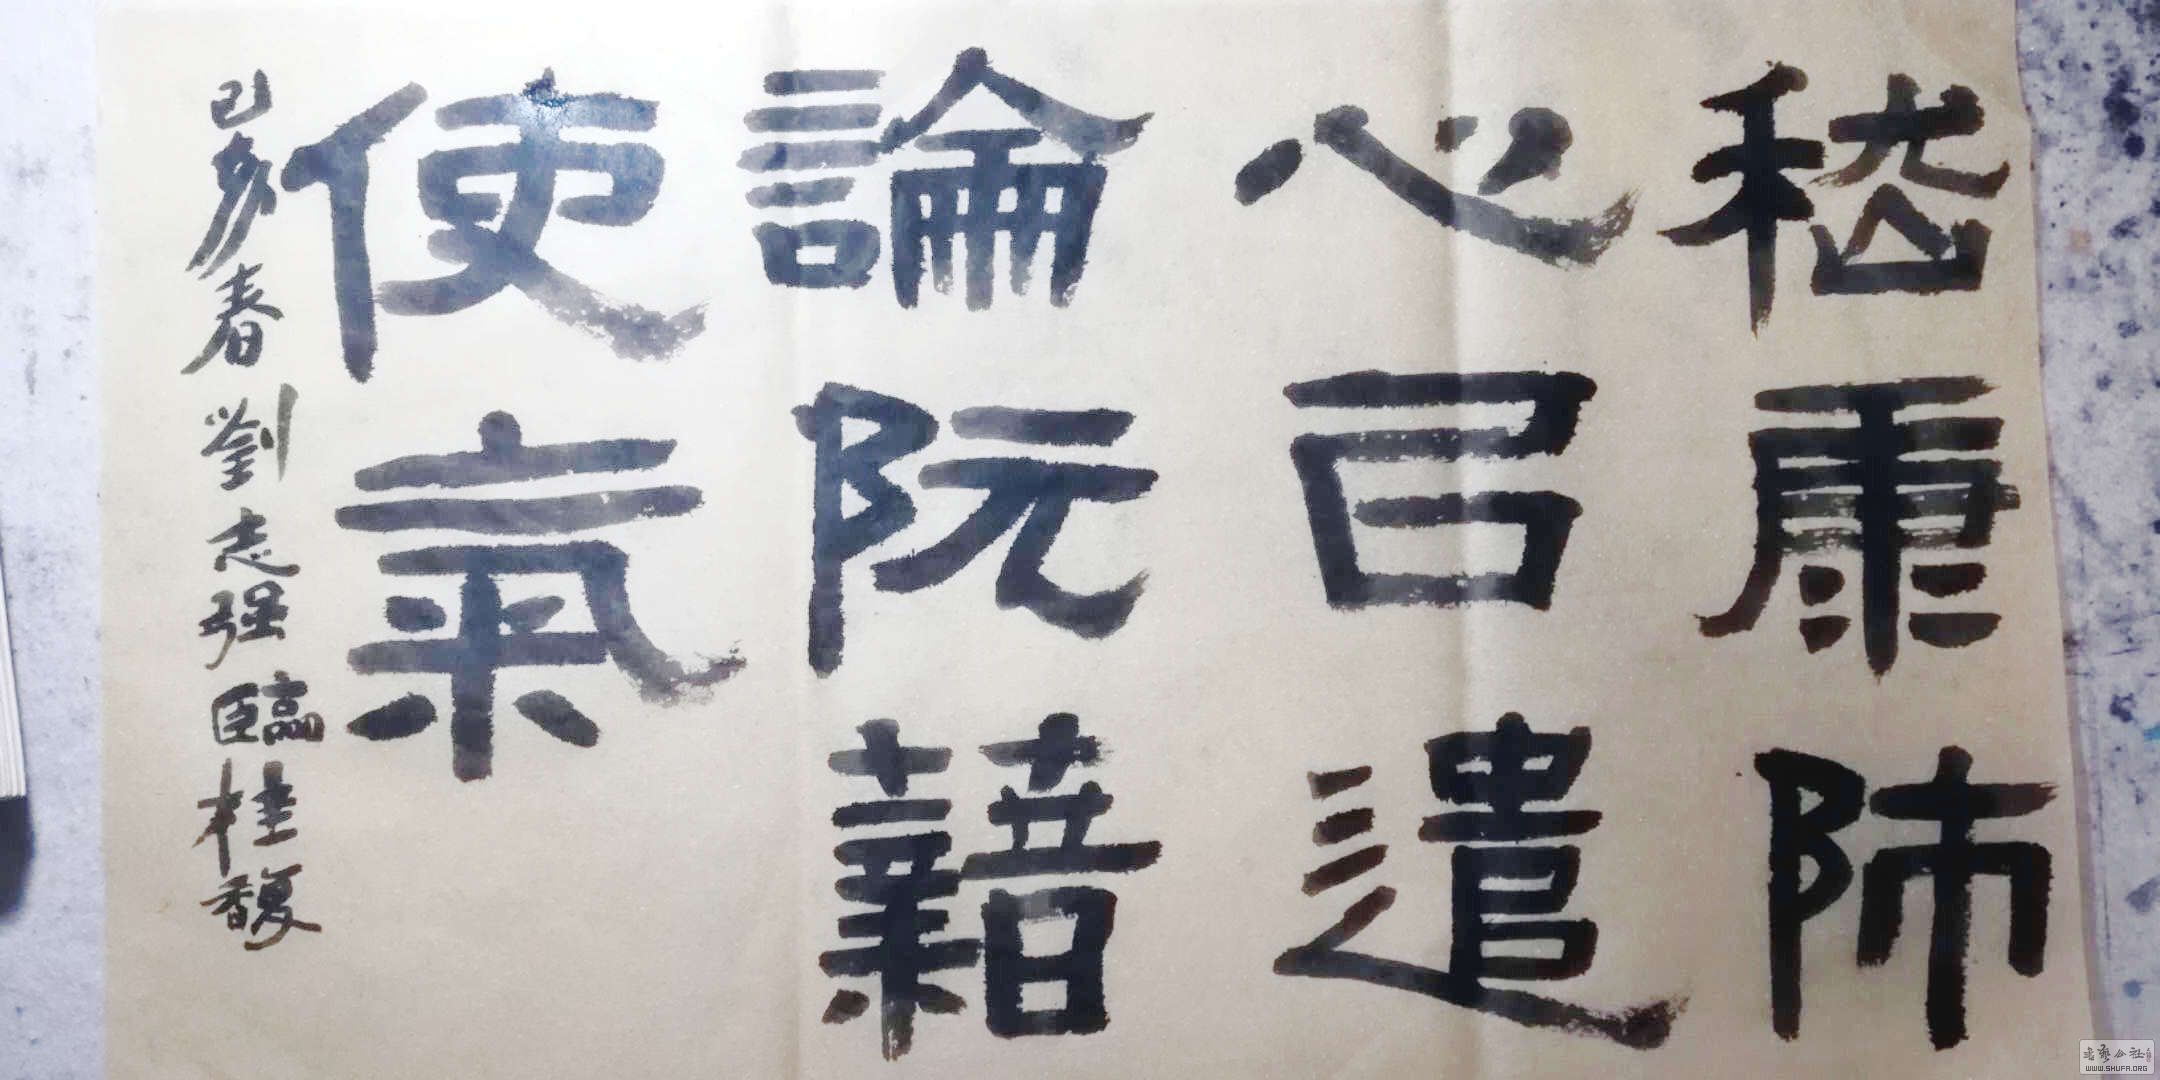 嵇康師
心㠯遣
論阮藉
使氣
己亥春劉志强臨桂馥
書藝公社
WWW.SHUFA.ORG